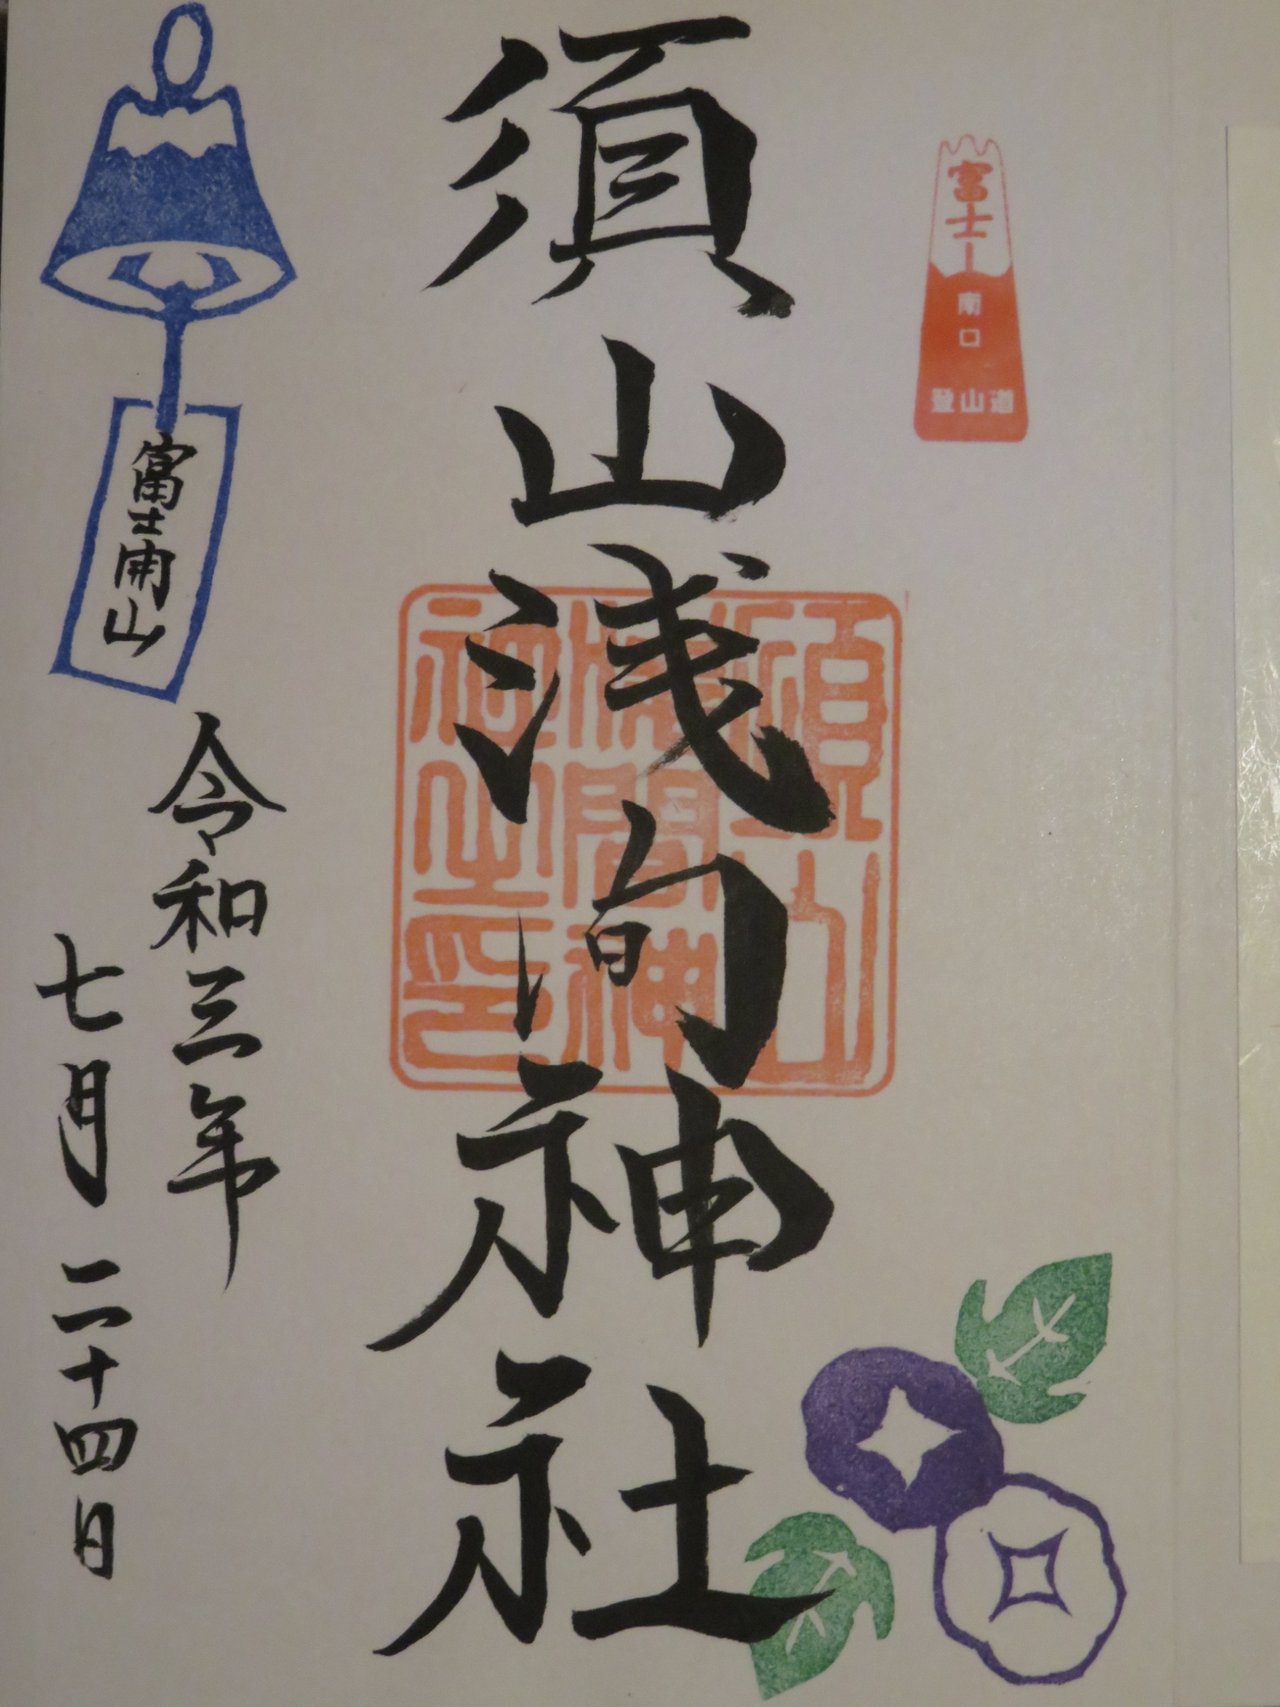 富士山
南口
登山道
須山浅間神社
須山
浅間神
社之印
富士開山
令和三年
七月二十四日